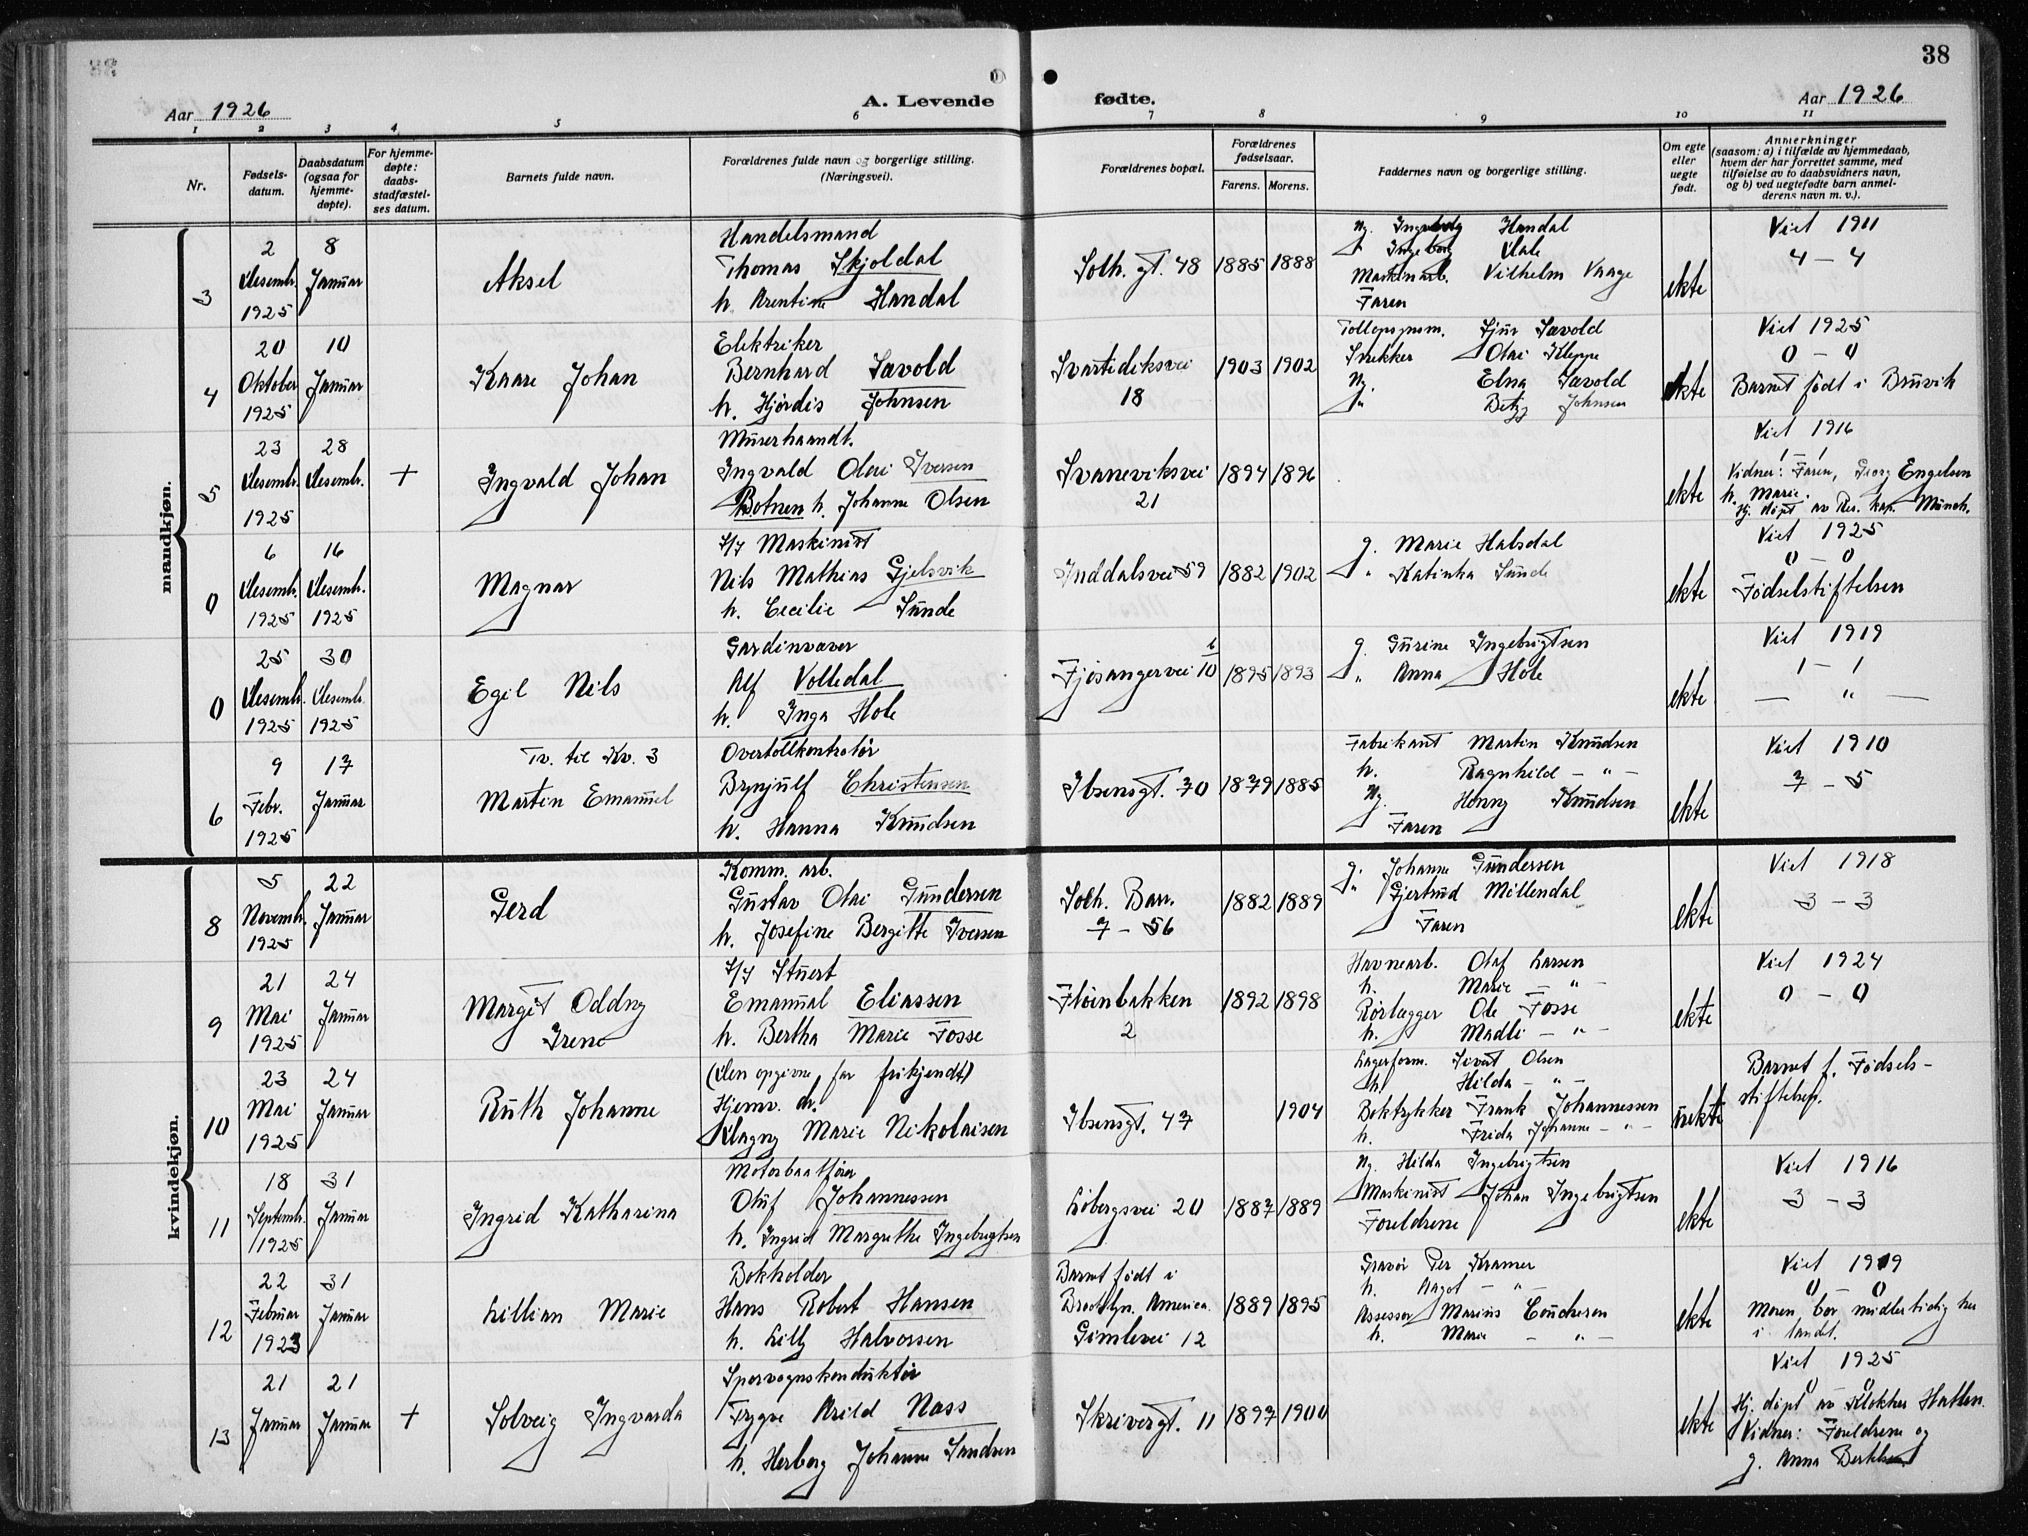 38
Aar 1926
A. Levende fødte.
Aar 1926
1 2 3 4 5 6 7 8 9 10 11
Nr.
Fødsels-
datum.
Daabsdatum
(ogsaa for
hjemme-
døpte).
For hjemme-
døpte:
daabs-
stadfæstel-
ses datum.
Barnets fulde navn.
Forældrenes fulde navn og borgerlige stilling.
(Næringsvei).
Forældrenes bopæl.
Forældrenes
fødselsaar.
Farens. Morens.
Faddernes navn og borgerlige stilling.
Om egte
eller
uegte
født.
Anmerkninger
(saasom: a) i tilfælde av hjemmedaab,
hvem der har forrettet samme, med
tilføielse av to daabsvidners navn,
og b) ved uegtefødte barn anmel-
derens navn m. v.).
mandkjøn.
3
2
Desembr.
1925
8
Januar
Aksel
Handelsmand
Thomas Skjoldal
h. Arentine Handal
Solh. gt. 48
1885 1888
Ug. Ingeborg Handal
" Ingeborg Dale
Maskinarb. Vilhelm Vaage
Faren
ekte
Viet 1911
4 - 4
4
20
Oktober
1925
10
Januar
Kaare Johan
Elektriker
Bernhard Sævold
h. Hjørdis Johnsen
Svartediksvei
18
1903 1902
Tollopsynsm. Sjur Sævold
Snekker Olai Kleppe
Ug. Elna Sævold
" Betzy Johnsen
ekte
Viet 1925
0 - 0
Barnet født i Bruvik
5
23
Desembr.
1925
28
Desembr.
+
Ingvald Johan
Murerhaandt.
Ingvald Olai Iversen
Botnen h. Johanne Olsen
Svaneviksvei
21
1894 1896
ekte
Viet 1916
1 - 1
Vidner: Faren, Georg Engelsen
h. Marie.
Hj. døpt av Res. kap. Münch.
0
6
Desembr.
1925
16
Desembr.
1925
Magnar
S/S Maskinist
Nils Mathias Gjelsvik
h. Cecilie Sunde
Inddalsvei 59
1882 1902
g. Marie Halsdal
" Katinka Sunde
ekte
Viet 1925
0 - 0
Fødselstiftelsen
0
25
Desembr.
1925
30
Desembr.
1925
Egil Nils
Gardinvæver
Alf Volledal
h. Inga Hole
Fjøsangervei 10 b
1895 1893
g. Gurine Ingebrigtsen
" Anna Hole
ekte
Viet 1919
1 - 1
— " —
6
9
Febr.
1925
17
Januar
Tv. til Kv. 3
Martin Emanuel
Overtollkontrolør
Brynjulf Christensen
h. Hanna Knudsen
Ibsensgt. 70
1879 1885
Fabrikant Martin Knudsen
h. Ragnhild - " -
Ug. Honny Knudsen
Faren
ekte
Viet 1910
7 - 5
kvindekjøn.
8
5
Novembr.
1925
22
Januar
Gerd
Komm. arb.
Gustav Olai Gundersen
h. Josefine Bergitte Iversen
Solh. Barr.
7 - 56
1882 1889
g. Johanne Gundersen
" Gjertrud Møllendal
Faren
ekte
Viet 1918
3 - 3
9
21
Mai
1925
24
Januar
Margit Oddny
Irene
S/S Stuert
Emanuel Eliassen
h. Bertha Marie Fosse
Fløienbakken
2
1892 1898
Havnearb. Olaf Larsen
h. Marie - " -
Rørlægger Ole Fosse
h. Madli - " -
ekte
Viet 1924
0 - 0
10
23
Mai
1925
24
Januar
Ruth Johanne
(Den opgivne far frikjendt)
Hjemv. dt.
Dagny Marie Nikolaisen
Ibsensgt. 47
1904
Lagerform. Sivert Olsen
h. Hilda - " -
Boktrykker Frank Johannessen
h. Frida Johanne - " -
uekte
Barnet f. Fødsels-
stiftelsen.
11
18
Septembr.
1925
31
Januar
Ingrid Katharina
Motorbaatfører
Oluf Johannessen
h. Ingrid Margrethe Ingebrigtsen
Løbergsvei 20
1887 1889
Ug. Hilda Ingebrigtsen
Maskinist Johan Ingebrigtsen
Foreldrene
ekte
Viet 1916
3 - 3
12
22
Februar
1923
31
Januar
Lillian Marie
Bokholder
Hans Robert Hansen
h. Lilly Halvorsen
Barnet født i
Brooklyn. America.
Gimlevei 12
1889 1895
Gravør Per Kramer
h. Aagot - " -
Assessor Marius Coucheron
h. Marie - " -
ekte
Viet 1919
0 0
Moren bor midlertidig her
i landet.
13
21
Januar
21
Januar
+
Solveig Ingvarda
Sporvognskonduktør
Trygve Arild Næss
h. Herborg Johanne Sandsen
Skrivergt. 11
1897 1900
ekte
Viet 1925
0 0
Hj. døpt av Klokker Hatlen.
Vidner: Foreldrene og
g. Anna Bertelsen